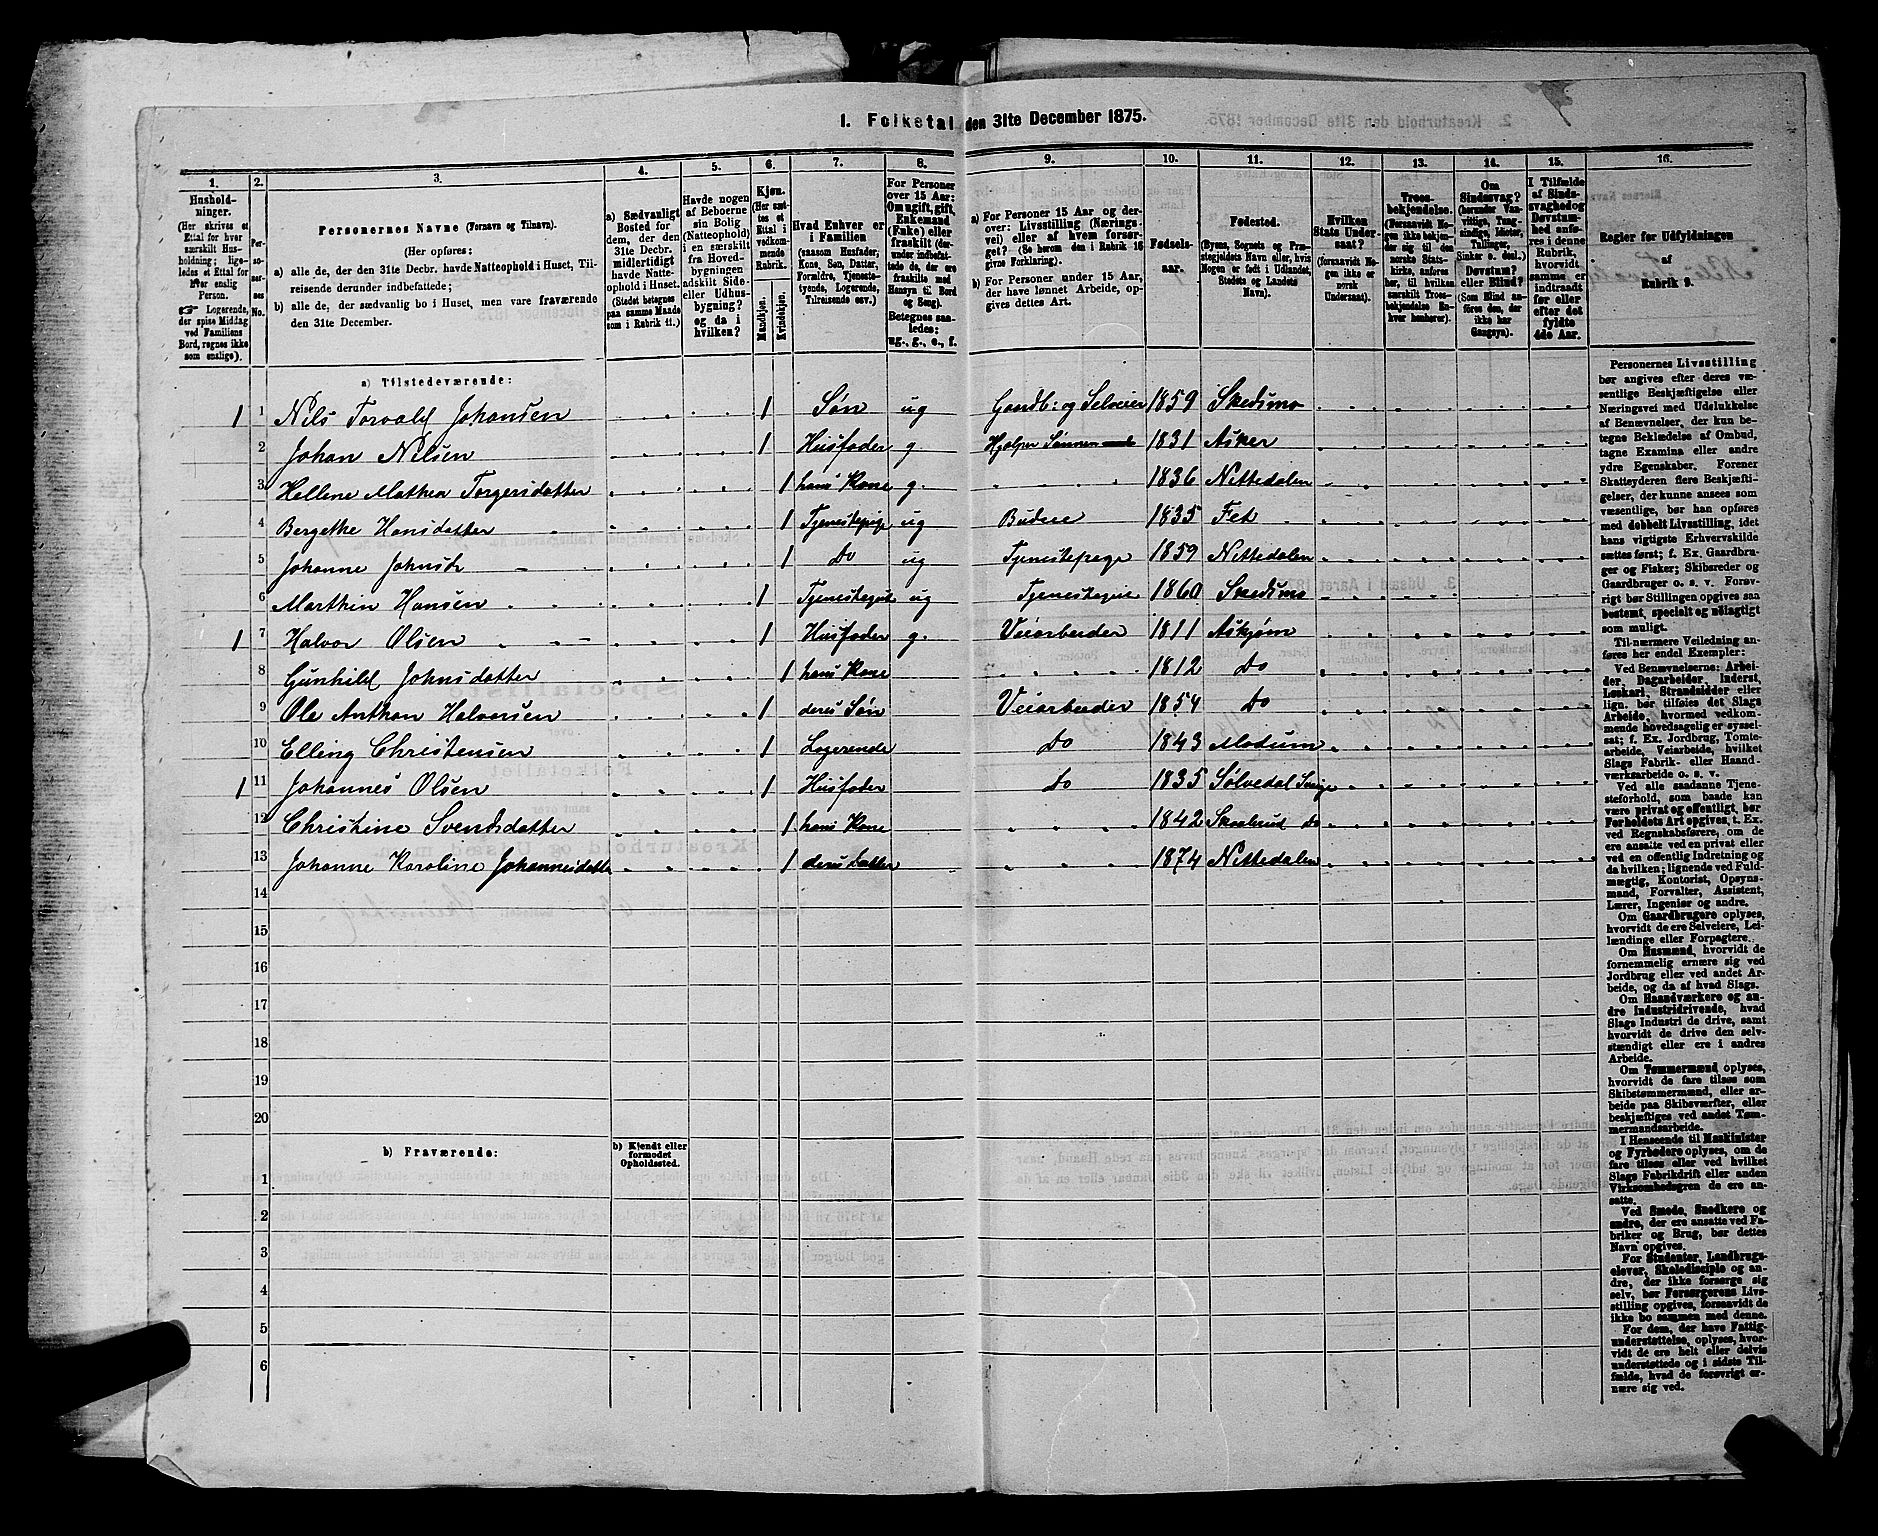 1. Folketal den 31te December 1875.
1. 2. 3. 4. 5. 6. 7. 8. 9. 10. 11. 12. 13. 14. 15. 16.
Hushold-
ninger.
(Her skrives et
Ettal for hver
særskilt Hus-
holdning; lige-
ledes et Ettal for
hver enslig
Person.
☞ Logerende,
der spise Middag
ved Familiens
Bord, regnes ikke
som enslige).
Personernes No.
Personernes Navne (Fornavn og Tilnavn).
(Her opføres:
a) alle de, der den 31te Decbr. havde Natteophold i Huset, Til-
reisende derunder indbefattede;
b) alle de, der sædvanlig bo i Huset, men vare fraværende
den 31te December.
a) Sædvanligt
Bosted for
dem, der den
31te Decbr.
midlertidigt
havde Natte-
ophold i Huset.
(Stedet betegnes
paa samme Maade
som i Rubrik 11.)
Havde nogen
af Beboerne
sin Bolig
(Natteophold)
i en særskilt
fra Hoved-
bygningen
adskilt Side-
eller Udhus-
bygning?
og da i
hvilken?
Kjøn.
(Her sæt-
tes et
Ettal i
vedkom-
mende
Rubrik.
Mandkjøn.
Kvindekjøn.
Hvad Enhver er
i Familien
(saasom Husfader,
Kone, Søn, Datter,
Forældre, Tjeneste-
tyende, Logerende,
Tilreisende osv.)
For Personer
over 15 Aar:
Om ugift, gift,
Enkemand
(Enke) eller
fraskilt (der-
under indbefat-
tede de, der ere
fraskilte med
Hensyn til Bord
og Seng).
Betegnes saa-
ledes:
ug., g., e., f.
a) For Personer 15 Aar og der-
over: Livsstilling (Nærings-
vei) eller af hvem forsør-
get? (Se herom den i Rubrik 16
givne Forklaring).
b) For Personer under 15 Aar,
der have lønnet Arbeide, op-
gives dettes Art.
Fødsels-
aar.
Fødested.
(Byens, Sognets og Præ-
stegjeldets Navn eller, hvis
Nogen er født i Udlandet,
Stedets og Landets
Navn).
Hvilken
Stats Under-
saat?
(Forsaavidt No-
gen ikke er
norsk
Undersaat).
Troes-
bekjendelse.
(Forsaavidt No-
gen ikke bekjen-
der sig til den
norske Stats-
kirke, anføres
her, til hvilken
særskilt Troes-
bekjendelse En-
hver henhører).
Om
Sindssvag?
(herunder Van-
vittige, Tung-
sindige, Idioter,
Tullinger,
Sinker o. desl.)
Døvstum?
eller Blind?
(Som Blind an-
føres den, der
ikke har
Gangsyn).
I Tilfælde
af Sinds-
svaghed og
Døvstum-
hed anfø-
res i denne
Rubrik,
hvorvidt
samme er
indtraadt
før eller
efter det
fyldte
4de Aar.
Regler for Udfyldningen
af
Rubrik 9.
a) Tilstedeværende:
1 1 Nils Torvald Johansen 1 Søn ug Gaardb: og Selveier 1859 Skedsmo
2 Johan Nilsen 1 Husfader g. Hjelper Sønnen 1831 Asker
3 Hellene Mathea Torgersdatter 1 hans Kone g. 1836 Nittedalen
4 Bergethe Hansdatter 1 Tjenestepige ug Budeie 1835 Fet
5 Johanne Johnsdr 1 Do ug Tjenestepige 1859 Nittedalen
6 Marthin Hansen 1 Tjenestegut ug Tjenestegut 1860 Skedsmo
1 7 Halvor Olsen 1 Husfader g. Veiarbeider 1811 Askjøm
8 Gunhild Johnsdatter 1 hans Kone 1812 Do
9 Ole Anthon Halvorsen 1 deres Søn Veiarbeider 1854 Do
10 Elling Christensen 1 Logerende Do 1843 Modum
1 11 Johannes Olsen 1 Husfader Do 1835 Sølvedal
12 Christine Svendsdatter 1 hans Kone 1842 Do
13 Johanne Karoline Johannesdatter 1 deres Datter 1874 Nittedalen
14
15
16
17
18
19
20
b) Fraværende:
b) Kjendt eller
formodet
Opholdssted.
1
2
3
4
5
6
Personernes Livsstilling
bør angives efter deres væ-
sentlige Beskjæftigelse eller
Næringsvei med Udelukkelse
af Benævnelser, der kun be-
tegne Beklædelse af Ombud,
tagne Examina eller andre
ydre Egenskaber. Forener
Skatteyderen flere Beskjæfti-
gelser, der kunne ansees som
væsentlige, bør han opføres
med dobbelt Livsstilling, idet
hans vigtigste Erhvervskilde
sættes først; f. Ex. Gaardbru-
ger og Fisker; Skibsreder og
Gaardbruger o. s. v. Forøv-
rigt bør Stillingen opgives saa
bestemt, specielt og nøiagtigt
som muligt.
Til nærmere Veiledning an-
føres her endel Exempler:
Ved Benævnelserne: Arbei-
der, Dagarbeider, Inderst,
Løskarl, Strandsidder eller
lign. bør tilføies det Slags
Arbeide, hvormed vedkom-
mende hovedsagelig er syssel-
sat; f. Ex. Jordbrug, Tomte-
arbeide, Veiarbeide, hvilket
Slags Fabrik- eller Haand-
værksarbeide o. s. v.
Ved alle saadanne Tjene-
steforhold, som baade kan
være privat og offentligt, bør
Forholdets Art opgives, t. Ex.
ved Regnskabsførere, om de
ere ansatte ved en privat eller
ved en offentlig Indretning og
da hvilken; lignende ved Fuld-
mægtig, Kontorist, Opsyns-
mand, Forvalter, Assistent,
Lærer, Ingeniør og andre.
Om Gaardbrugere oplyses,
hvorvidt de ere Selveiere, Lei-
lændinge eller Forpagtere.
Om Husmænd, hvorvidt de
fornemmelig ernære sig ved
Jordbrug eller ved andet Ar-
beide, og da af hvad Slags.
Om Haandværkere og an-
dre Industridrivende, hvad
Slags Industri de drive, samt
hvorvidt de drive den selv-
stændigt eller ere i andres
Arbeide.
Om Tømmermænd oplyses,
hvorvidt de fare tilsøs som
Skibstømmermænd, eller ar-
beide paa Skibsværfter, eller
beskjæftiges ved andet Tøm-
mermandsarbeide.
I Henseende til Maskinister
og Fyrbødere oplyses, om de
fare tilsøs eller ved hvilket
Slags Fabrikdrift eller anden
Virksomhedsgren de ere an-
satte.
Ved Smede, Snedkere og
andre, der ere ansatte ved Fa-
briker og Brug, bør dettes
Navn opgives.
For Studenter, Landbrugs-
elever, Skoledisciple og an-
dre, der ikke forsørge sig
selv, bør Forsørgerens Livs-
stilling opgives, forsaavidt de
ikke bo sammen med denne.
For dem, der have Fattig-
understøttelse, oplyses, hvor-
vidt de ere helt eller delvis
understøttede og i sidste Til-
fælde, hvad de forøvrigt er-
nære sig ved.